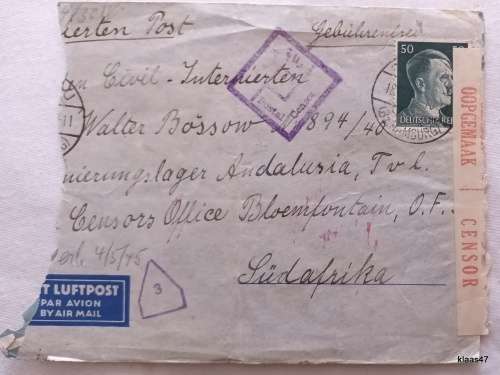 ierten Post Gebührenfrei
50
DEUTSCHES REICH
HAMBURG
n Civil-Internierten
Walter Bössow N 894/40
nierungslager Andalusia, Tvl.
Censors Office Bloemfontain, O.F.S
4/5/45
Südafrika
T LUFTPOST
PAR AVION
BY AIR MAIL
3
OOPGEMAAK CENSOR
klaas47